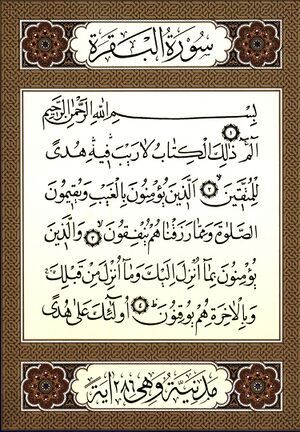 سُورَةُ الْبَقَرَةِ
بِسْمِ اللهِ الرَّحْمٰنِ الرَّحِيمِ
الٓمٓ ١ ذٰلِكَ الْكِتَابُ لَا رَيْبَ فِيهِ هُدًى
لِلْمُتَّقِينَ ٢ اَلَّذِينَ يُؤْمِنُونَ بِالْغَيْبِ وَيُقِيمُونَ
الصَّلٰوةَ وَمِمَّا رَزَقْنَاهُمْ يُنْفِقُونَ ٣ وَالَّذِينَ
يُؤْمِنُونَ بِمَا اُنْزِلَ اِلَيْكَ وَمَا اُنْزِلَ مِنْ قَبْلِكَ
وَبِالْاٰخِرَةِ هُمْ يُوقِنُونَ ٤ اُولٰئِكَ عَلٰى هُدًى
مَدَنِيَّةٌ وَهِيَ ٢٨٦ اٰيَةً